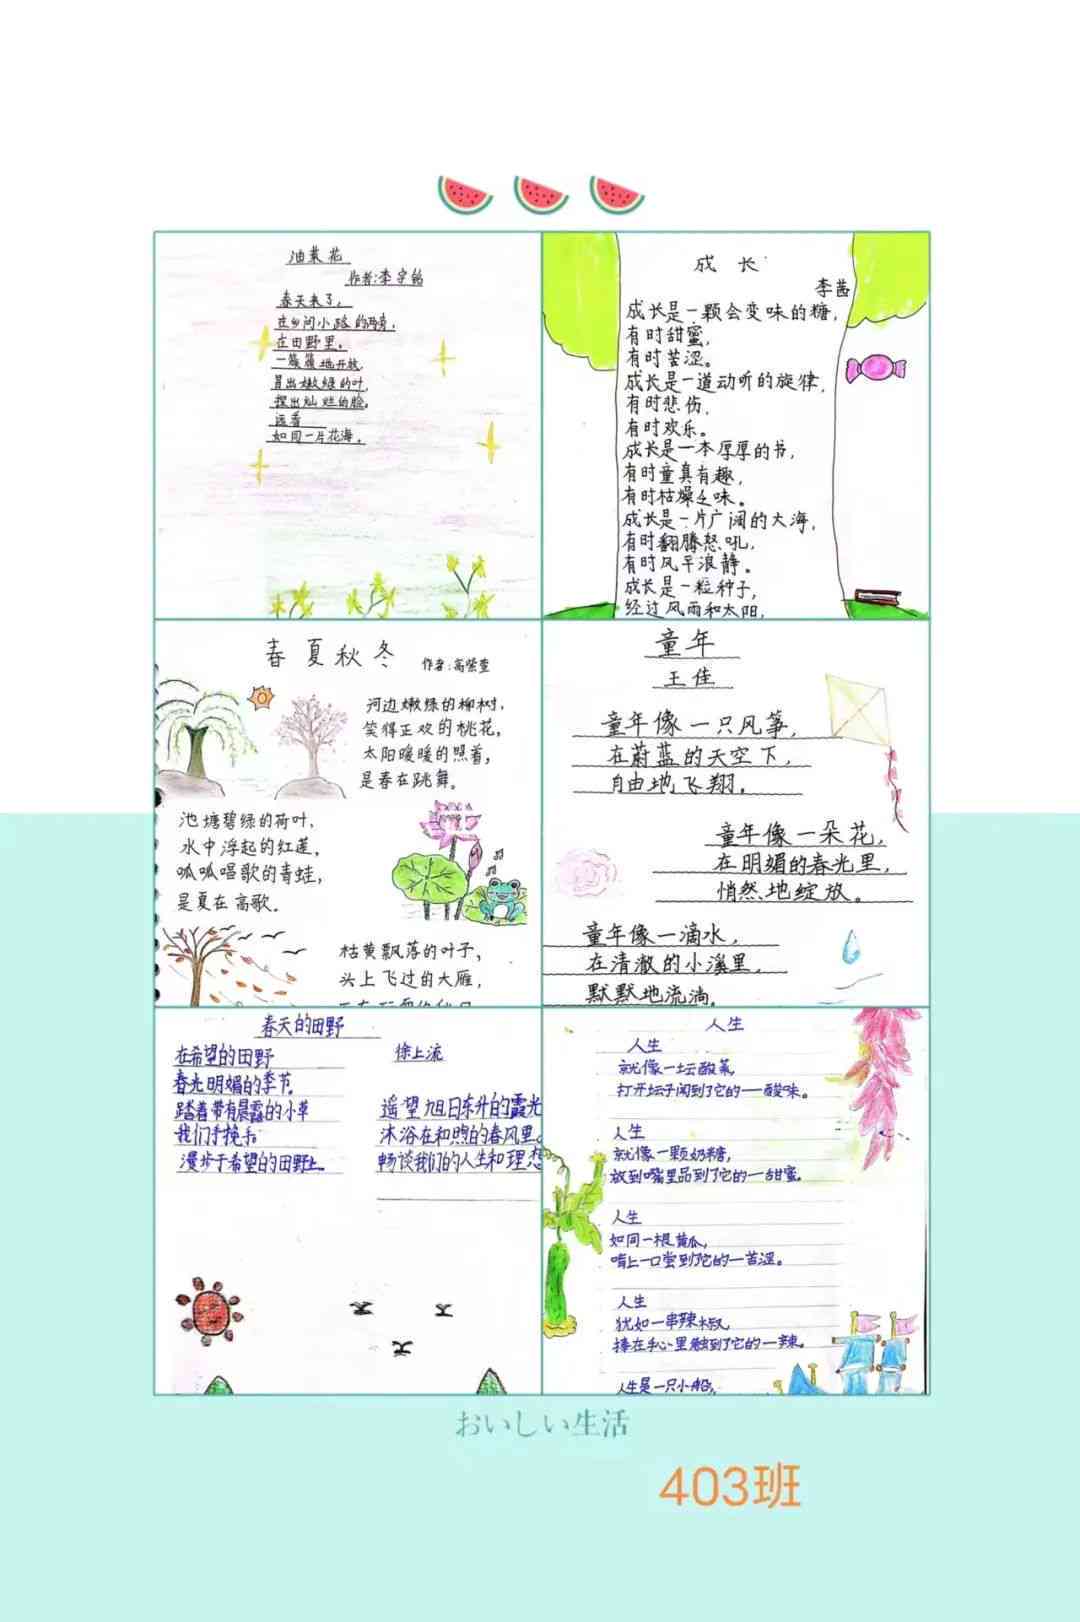 油菜花
作者:李宇铭
春天来了,
在乡间小路的两旁,
在田野里。
一簇簇地开放,
冒出嫩绿的叶,
探出灿烂的脸。
远看
如同一片花海。
成长
李茜
成长是一颗会变味的糖,
有时甜蜜,
有时苦涩。
成长是一道动听的旋律,
有时悲伤,
有时欢乐。
成长是一本厚厚的书,
有时童真有趣,
有时枯燥乏味。
成长是一片广阔的大海,
有时翻腾怒吼,
有时风平浪静。
成长是一粒种子,
经过风雨和太阳,
春夏秋冬
作者:高紫萱
河边嫩绿的柳树,
笑得正欢的桃花,
太阳暖暖的照着,
是春在跳舞。
池塘碧绿的荷叶,
水中浮起的红莲,
呱呱唱歌的青蛙,
是夏在高歌.
枯黄飘落的叶子,
头上飞过的大雁,
童年
王佳
童年像一只风筝,
在蔚蓝的天空下,
自由地飞翔。
童年像一朵花,
在明媚的春光里,
悄然地绽放。
童年像一滴水,
在清澈的小溪里,
默默地流淌。
春天的田野
徐上流
在希望的田野
春光明媚的季节,
踏着带有晨露的小草
我们手挽手
漫步于希望的田野上。
遥望旭日东升的霞光
沐浴在和煦的春风里。
畅谈我们的人生和理想
人生
人生
就像一坛酸菜,
打开坛子闻到了它的一酸味。
人生
就像一颗奶糖,
放到嘴里品到了它的一甜蜜。
人生
如同一根黄瓜,
啃上一口尝到了它的一苦涩。
人生
犹如一串辣椒,
捧在手心里触到了它的一辣。
人生是一只小船,
おいしい生活
403班